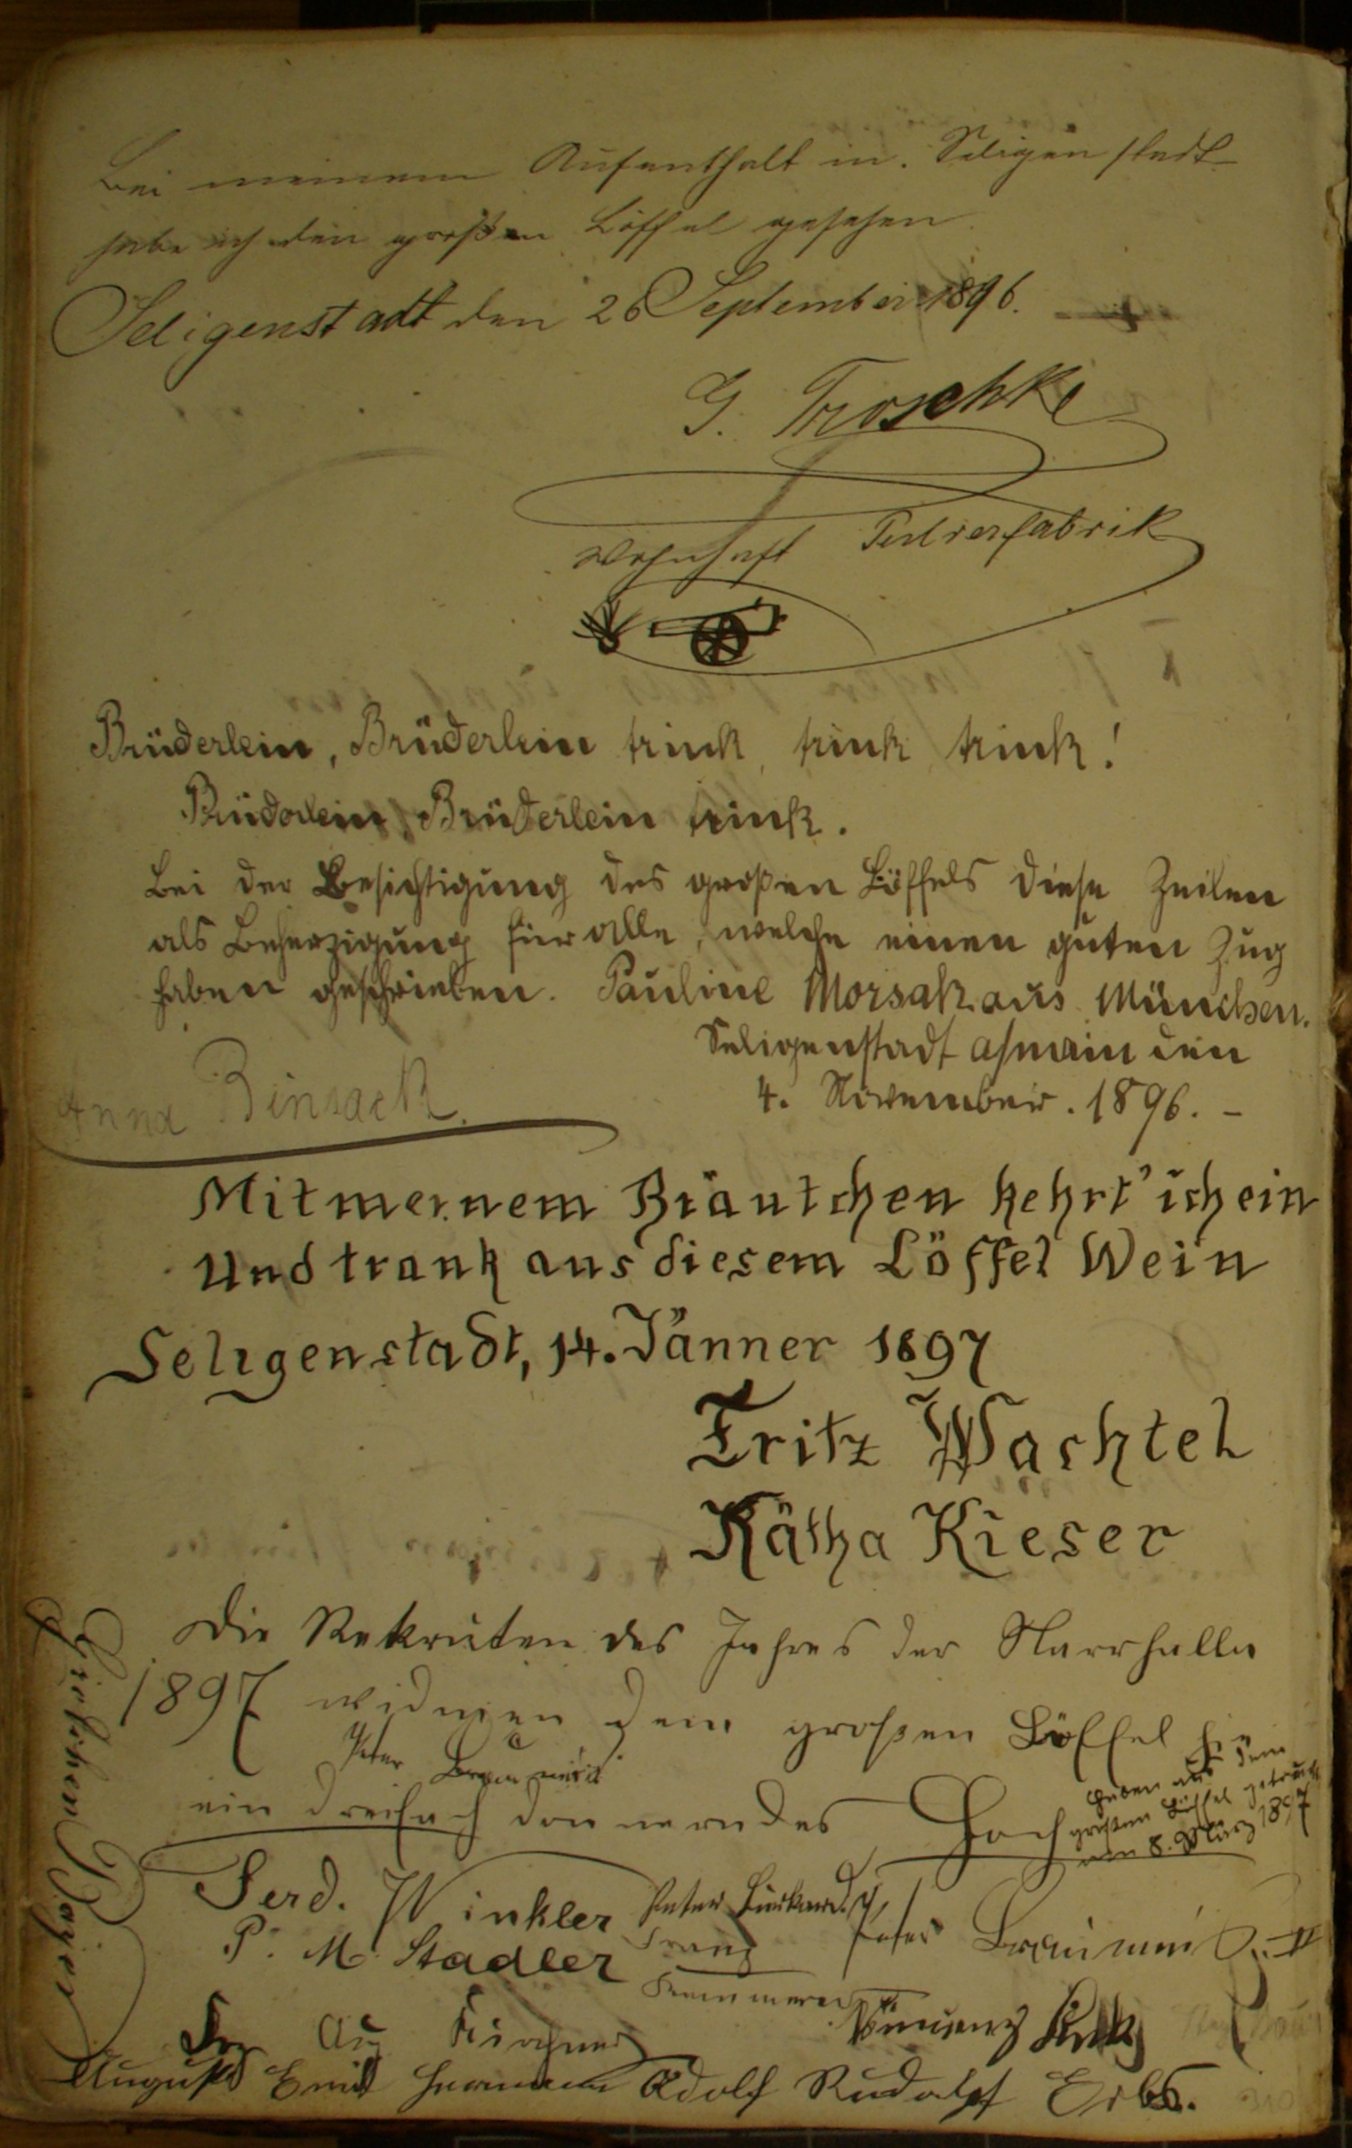 Bei meinem Aufenthalt in Seligenstadt
habe ich den großen Löffel gesehen.
Seligenstadt den 26 September 1896.
G. Troschke
wohnhaft
Brüderlein, Brüderlein trink, trink, trink!
Brüderlein, Brüderlein trink.
Bei der Besichtigung des großen Löffels diese Zeilen
als Beherzigung für alle, welche einen guten Zug
haben geschrieben. Pauline Morsak aus München.
Seligenstadt a/main den
4. November. 1896. –
Anna Binsack.
Mit meinem Bräutchen kehrt' ich ein
Und trank aus diesem Löffel Wein
Seligenstadt, 14. Jänner 1897
Fritz Wachtel
Kätha Kieser
Die Rekruten des Jahres der Narrhalla
1897 widmen dem großen Löffel
Peter
ein dreifach donnerndes Hoch
haben aus dem
großen Löffel getrunk
am 8. März 1897
Ferd. Winkler
Peter
P. M. Stadler
Franz
Peter
Aug Kirchner
August Emil Hermann Adolf Rudolf Erbs.